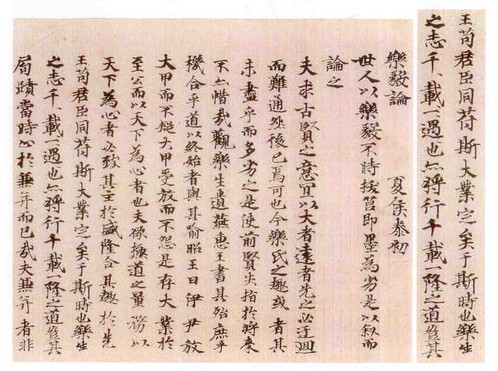 王苟君臣同符斯大業定矣于斯時也樂生
之志千載一遇也亦將行千載一隆之道豈其
樂毅論
夏侯泰初
世人以樂毅不時拔莒即墨為劣是以叙而
論之
夫求古賢之意宜以大者遠者先之必迂迴
而難通然後已焉可也今樂氏之趣或者其
未盡乎而多劣之是使前賢失指於將來
不亦惜哉觀樂生遺燕惠王書其殆庶乎
機合乎道以終始者與其喻昭王曰伊尹放
大甲而不疑大甲受放而不怨是存大業於
至公而以天下為心者也夫欲極道之量務以
天下為心者必致其主於盛隆合其趣於先
王苟君臣同符斯大業定矣于斯時也樂生
之志千載一遇也亦將行千載一隆之道豈其
局蹟當時止於兼并而已哉夫兼并者非